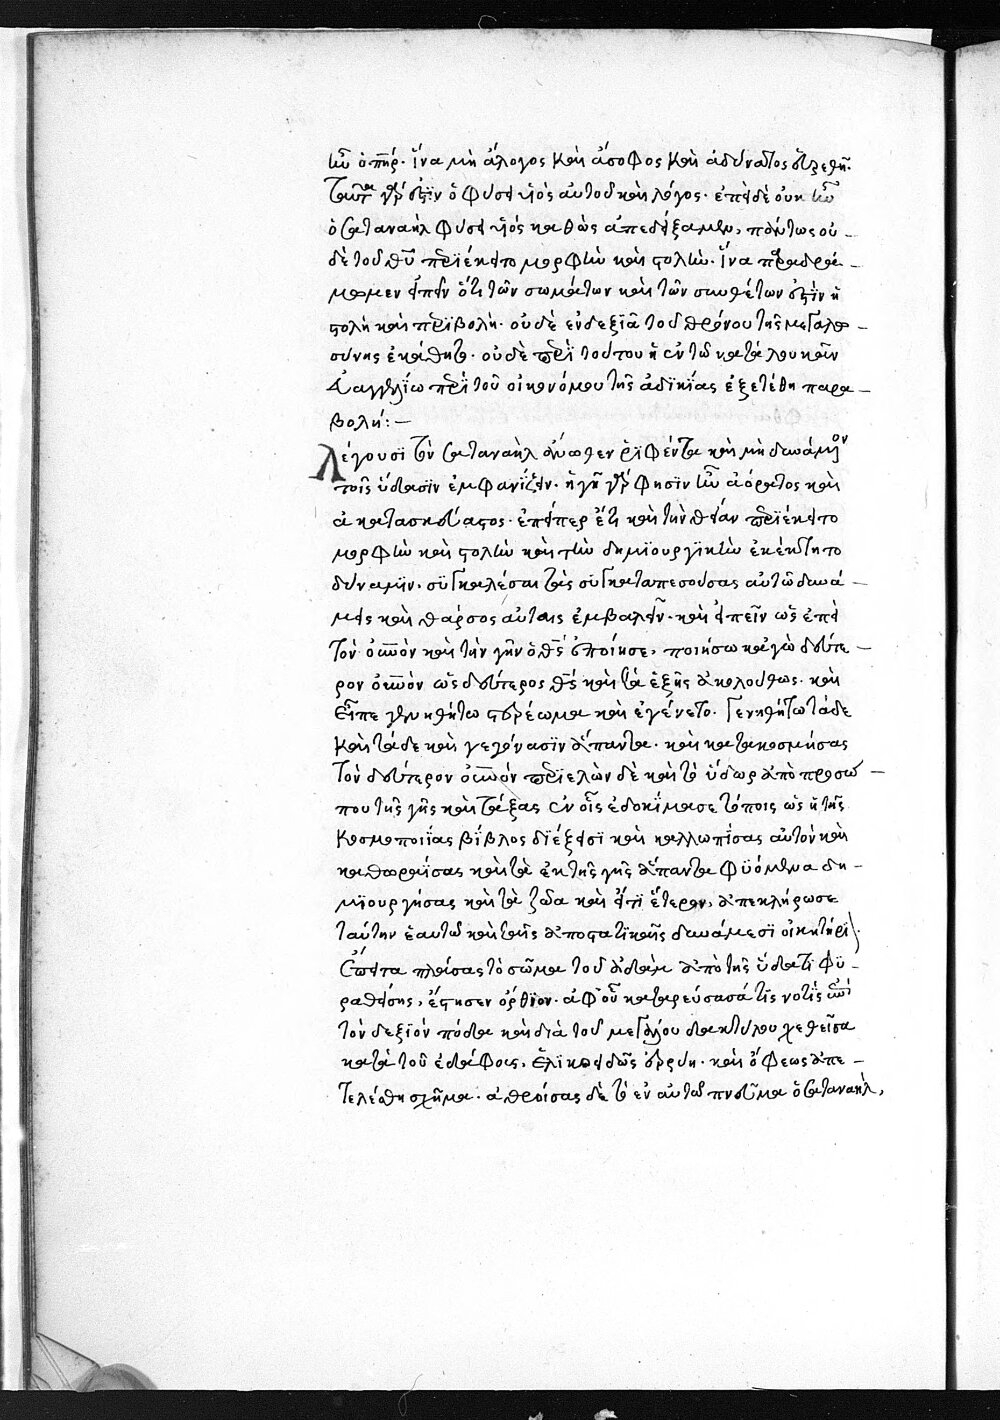 ἦν ὁ πὴρ· ἵνα μὴ ἄλογος καὶ ἄσοφος καὶ ἀδύνατος
ταῦτα γάρ ἐστιν ὁ φύσει υἱὸς αὐτοῦ καὶ λόγος· ἐπεὶ δὲ οὐκ ἦν
ὁ σαταναὴλ φύσει υἱός καθὼς ἀπεδείξαμεν, πάντως οὐ-
δὲ τοῦ θῦ περιέκειτο μορφὴν καὶ στολήν· ἵνα παραδρά-
μωμεν εἰπεῖν ὅτι τῶν σωμάτων καὶ τῶν συνθέτων ἐστὶν ἡ
στολὴ καὶ περιβολή· οὐδὲ ἐν δεξιᾷ τοῦ θρόνου τῆς μεγαλω-
σύνης ἐκάθητο· οὐδὲ περὶ τούτου ἡ ἐν τῷ κατὰ λουκᾶν
εὐαγγελίῳ περὶ τοῦ οἰκονόμου τῆς ἀδικίας ἐξετέθη παρα-
βολή:-
Λέγουσι τὸν σαταναὴλ ἄνωθεν ῥιφέντα καὶ μὴ δυνάμενον
τοῖς ὕδασιν ἐμφανίζειν· ἡ γῆ γάρ φησιν ἦν ἀόρατος καὶ
ἀκατασκεύαστος· ἐπείπερ ἔτι καὶ τὴν θείαν περιέκειτο
μορφὴν καὶ στολὴν καὶ τὴν δημιουργικὴν ἐκέκτητο
δύναμιν, συγκαλέσαι τὰς συγκαταπεσούσας αὐτῷ δυνά-
μεις καὶ θάρσος αὐταῖς ἐμβαλεῖν· καὶ εἰπεῖν ὡς ἐπεὶ
τὸν οὐνὸν καὶ τὴν γῆν ὁ θς ἐποίησε, ποιήσω κἀγὼ δεύτε-
ρον οὐνὸν ὡς δεύτερος θς καὶ τὰ ἑξῆς ἀκολούθως· καὶ
εἶπε γενηθήτω στερέωμα καὶ ἐγένετο. Γενηθήτω τάδε
καὶ τάδε καὶ γεγόνασιν ἅπαντα· καὶ κατακοσμήσας
τὸν δεύτερον οὐνόν περιελὼν δὲ καὶ τὸ ὕδωρ ἀπὸ προσώ-
που τῆς γῆς καὶ τάξας ἐν οἷς ἐδοκίμασε τόποις ὡς ἡ τῆς
κοσμοποιΐας βίβλος διέξεισι καὶ καλλωπίσας αὐτὸν καὶ
καθωραΐσας καὶ τὰ ἐκ τῆς γῆς ἅπαντα φυόμενα δη-
μιουργήσας καὶ τὰ ζῶα καὶ εἴτι ἕτερον, ἀπεκλήρωσε
ταύτην ἑαυτῷ καὶ ταῖς ἀποστατικαῖς δυνάμεσι οἰκητήρι).
εἶτα πλάσας τὸ σῶμα τοῦ ἀδὰμ ἀπὸ τῆς ὕδατι φυ-
ραθείσης, ἔστησεν ὄρθιον· ἀφ' οὗ καταρεύσασά τις νοτὶς ἐπὶ
τὸν δεξιὸν πόδα καὶ διὰ τοῦ μεγάλου δακτύλου χεθεῖσα
κατὰ τοῦ ἐδάφους, ἑλικοειδῶς ἐρρύη· καὶ ὄφεως ἀπε-
τελέσθη σχῆμα· ἀθροίσας δὲ τὸ ἐν αὐτῷ πνεῦμα ὁ σαταναὴλ,